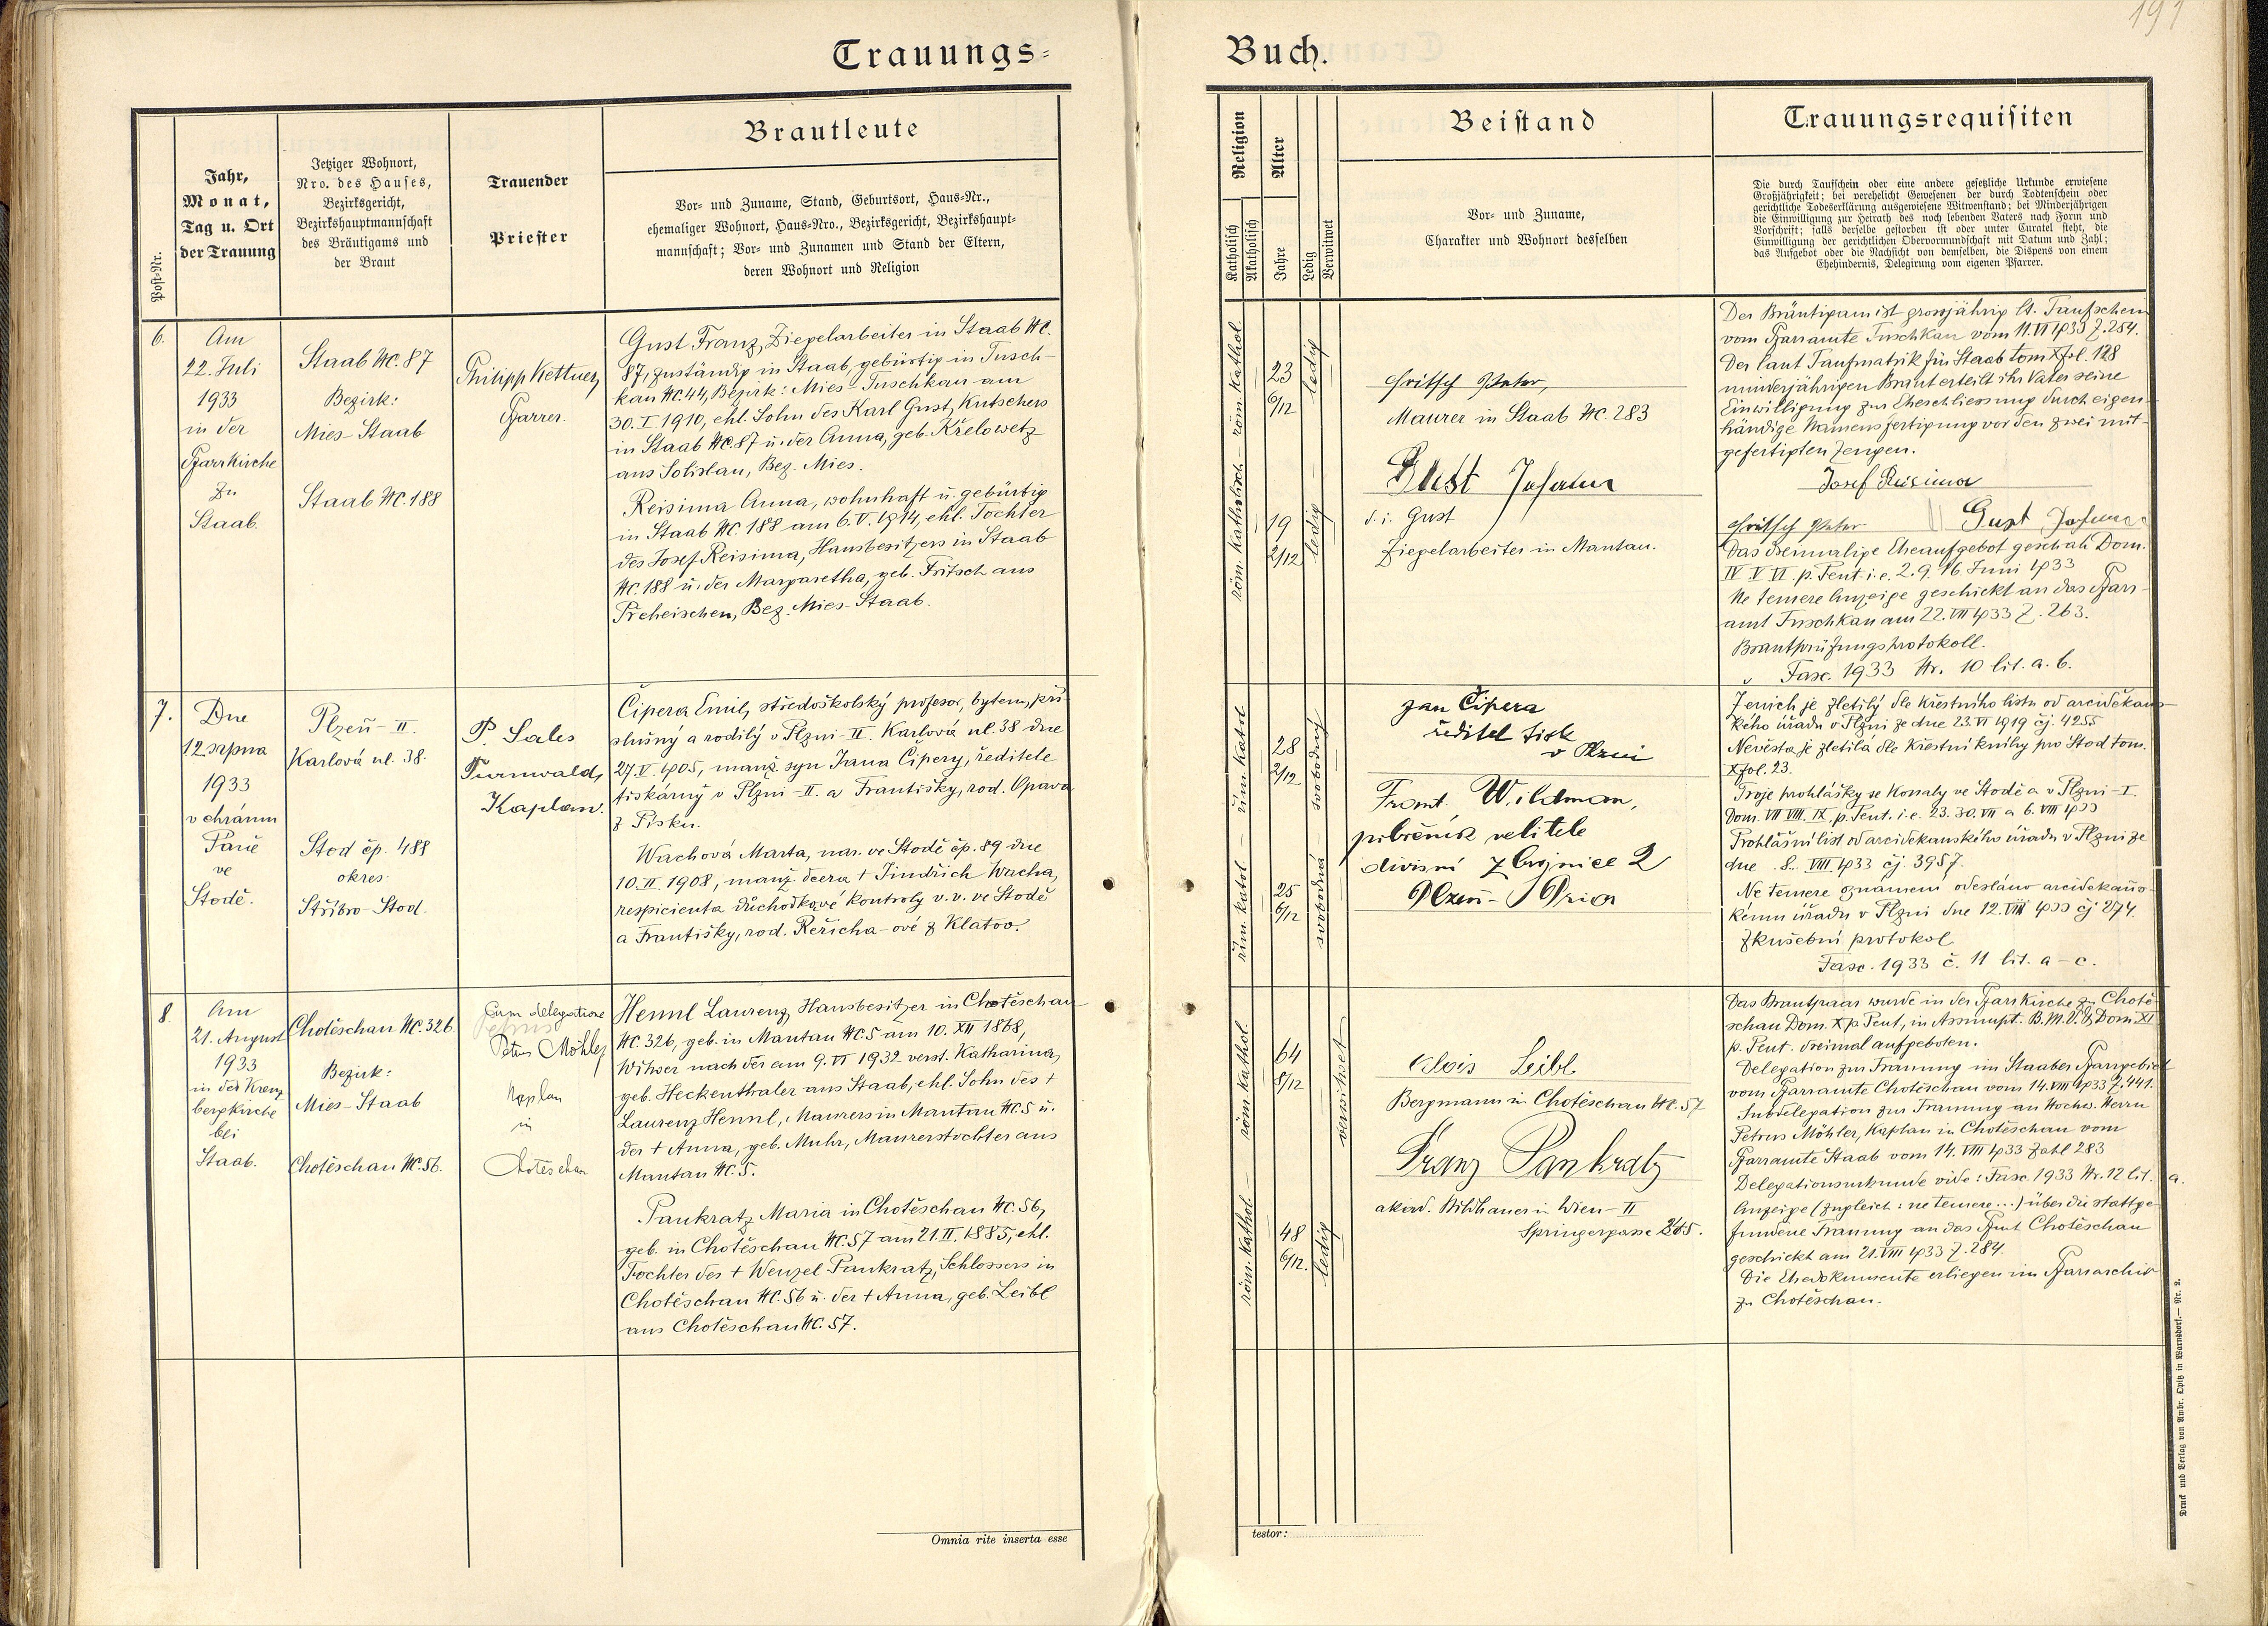 191
Trauungs-
Buch.
Post-Nr.
Jahr,
Monat,
Tag u. Ort
der Trauung
Jetziger Wohnort,
Nro. des Hauses,
Bezirksgericht,
Bezirkshauptmannschaft
des Bräutigams und
der Braut
Trauender
Priester
Brautleute
Vor- und Zuname, Stand, Geburtsort, Haus-Nr.,
ehemaliger Wohnort, Haus-Nro., Bezirksgericht, Bezirkshaupt-
mannschaft; Vor- und Zunamen und Stand der Eltern,
deren Wohnort und Religion
Religion
Katholisch
Akatholisch
Alter
Jahre
Ledig
Verwitwet
Beistand
Vor- und Zuname,
Charakter und Wohnort desselben
Trauungsrequisiten
Die durch Taufschein oder eine andere gesetzliche Urkunde erwiesene
Großjährigkeit; bei verehelicht Gewesenen der durch Todtenschein oder
gerichtliche Todeserklärung ausgewiesene Witwenstand; bei Minderjährigen
die Einwilligung zur Heirath des noch lebenden Vaters nach Form und
Vorschrift; falls derselbe gestorben ist oder unter Curatel steht, die
Einwilligung der gerichtlichen Obervormundschaft mit Datum und Zahl;
das Aufgebot oder die Nachsicht von demselben, die Dispens von einem
Ehehindernis, Delegirung vom eigenen Pfarrer.
6.
Am
22. Juli
1933
in der
Pfarrkirche
zu
Staab.
Staab NC. 87
Bezirk:
Mies-Staab
Staab NC. 188
Philipp Kettner,
Pfarrer.
Gust Franz, Ziegelarbeiter in Staab NC.
87, zuständig in Staab, gebürtig in Tusch-
kau NC. 44, Bezirk: Mies-Tuschkau am
30. I. 1910, ehl. Sohn des Karl Gust, Kutschers
in Staab NC. 87 u. der Anna, geb. Křelowetz
aus Solislau, Bez. Mies.
Reisima Anna, wohnhaft u. gebürtig
in Staab NC. 188 am 6. V. 1914, ehl. Tochter
des Josef Reisima, Hausbesitzers in Staab
NC. 188 u. der Margaretha, geb. Fritsch aus
Přeheischen, Bez. Mies-Staab.
röm. katholisch - röm. kathol.
23
6/12
19
2/12
ledig - ledig
Fritsch Peter,
Maurer in Staab NC. 283
Gust Johann
d. i. Gust
Ziegelarbeiter in Mantau.
Der Bräutigam ist grossjährig lt. Taufschein
vom Pfarramte Tuschkau vom 11. VI 1933 Z. 254.
Der laut Taufmatrik für Staab tom X fol. 128
minderjährigen Braut erteilt ihr Vater seine
Einwilligung zur Eheschliessung durch eigen-
händige Namensfertigung vor den zwei mit-
gefertigten Zeugen.
Josef Reisima
Fritsch Peter Gust Johann
Das dreimalige Eheaufgebot geschah Dom.
IV V VI. p. Pent. i. e. 2. 9. 16. Juni 1933
Ne temere Anzeige geschickt an das Pfarr-
amt Tuschkau am 22. VII 1933 Z. 263.
Brautprüfungsprotokoll.
Fasc. 1933 Nr. 10 lit. a. b.
7.
Dne
12 srpna
1933
v chrámu
Páně
ve
Stodě.
Plzeň - II.
Karlová ul. 38.
Stod čp. 488
okres:
Stříbro-Stod.
P. Sales
Turnwald,
Kaplan.
Čipera Emil, středoškolský profesor, bytem, pří-
slušný a rodilý v Plzni-II. Karlová ul. 38 dne
27. V. 1905, manž. syn Jana Čipery, ředitele
tiskárny v Plzni-II. a Františky, rod. Opava
z Písku.
Wachová Marta, nar. ve Stodě čp. 89 dne
10. II. 1908, manž. dcera † Jindřich Wacha,
respicienta důchodkové kontroly v. v. ve Stodě
a Františky, rod. Řeřicha-ové z Klatov.
řím. katol. - řím. katol
28
2/12
25
6/12
svobodná - svobodný
Jan Čipera
ředitel tisk
v Plzni
Frant. Wildman,
pobočník velitele
divisní zbrojnice 2
Plzeň-
Ženich je zletilý dle křestního listu od arciděkan-
kého úřadu v Plzni ze dne 23. VI 1919 čj. 4255
Nevěsta je zletilá dle křestní knihy pro Stod tom.
X fol. 23.
Troje prohlášky se konaly ve Stodě a v Plzni-I.
Dom. VII VIII. IX. p. Pent. i. e. 23. 30. VII a 6. VIII 1933
Prohlášní list od arciděkanského úřadu v Plzni ze
dne 8. VIII 1933 čj. 3957.
Ne temere oznámení odesláno arciděkans-
kému úřadu v Plzni dne 12. VIII 1933 čj 274.
Zkušební protokol
Fasc. 1933 č. 11 lit. a-c.
8.
Am
21. August
1933
in der Kreuz
bergkirche
bei
Staab.
Chotěschau NC. 326.
Bezirk:
Mies-Staab
Chotěschau NC. 56.
Cum delegatione
Petrus Möhler
Kaplan
in
Chotěschau
Hennl Laurenz Hausbesitzer in Chotěschau
NC. 326, geb. in Mantau NC. 5 am 10. XII 1868,
Witwer nach der am 9. VI 1932 verst. Katharina,
geb. Heckenthaler aus Staab, ehl. Sohn des †
Laurenz Hennl, Maurers in Mantau NC. 5 u.
der † Anna, geb. Muhr, Maurerstochter aus
Mantau NC. 5.
Pankratz Maria in Chotěschau NC. 56,
geb. in Chotěschau NC. 57 am 21. II. 1885, ehl.
Tochter des † Wenzel Pankratz, Schlossers in
Chotěschau NC. 56 u. der † Anna, geb. Leibl
aus Chotěschau NC. 57.
röm. kathol. - röm. kathol.
64
8/12
48
6/12.
ledig
verwitwet
Alois Leibl
Bergmann in Chotěschau NC. 57
Franz Pankratz
akad. Bildhauer in Wien - II
Springergasse
Das Brautpaar wurde in der Pfarrkirche zu Chotě-
schau Dom. X p. Pent, in Assumpt. B. M. V. & Dom. XI
p. Pent. dreimal aufgeboten.
Delegation zur Trauung im Staaber Pfarrgebiet
vom Pfarramte Chotěschau vom 14. VIII 1933 Z. 441.
Subdelegation zur Trauung an Hochw. Herrn
Petrus Möhler, Kaplan in Chotěschau vom
Pfarramte Staab vom 14. VIII 1933 Zahl 283
Delegationsurkunde vide: Fasc. 1933 Nr. 12 lit. a.
Anzeige (zugleich: ne temere...) über die stattge-
fundene Trauung an das Pfmt Chotěschau
geschickt am 21. VIII 1933 Z. 284.
Die Ehedokumente erliegen im Pfarrarchiv
zu Chotěschau.
Omnia rite inserta esse
testor:
Druck und Verlag von Ambr. Opitz in Warnsdorf. — Nr. 2.